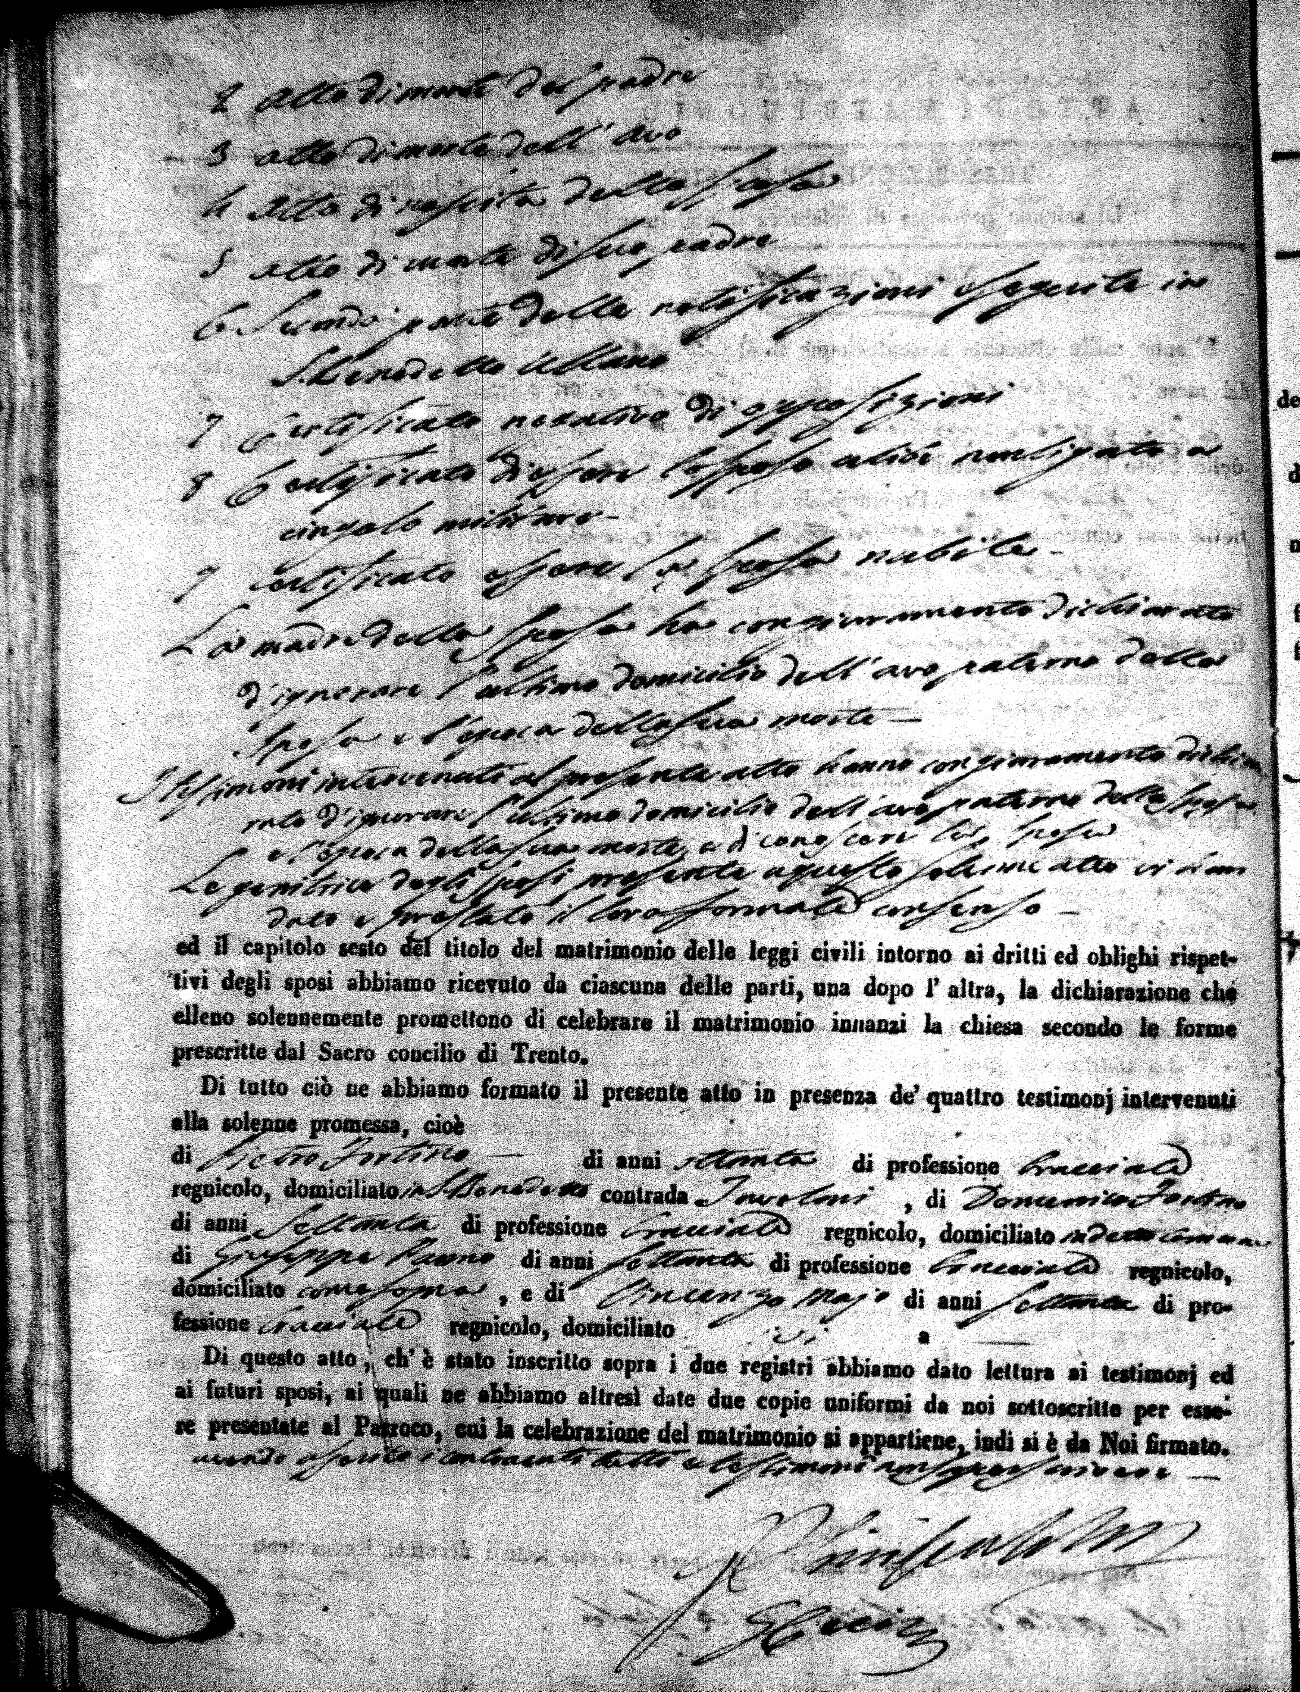 2 Atto di morte del padre
3 atto di morte dell' avo
4 Atto di nascita della sposa
5 Atto di morte di suo padre
6 Seconda parte delle notificazioni eseguite in
S. Benedetto Ullano
7 Certificato negativo di opposizioni
8 Certificato di essere lo sposo alibi non ligato a
cingolo militare -
9 Certificato essere la sposa nubile -
La madre della sposa ha con giuramento dichiarato
d'ignorare l'ultimo domicilio dell' avo paterno della
sposa e l'epoca della sua morte -
I testimoni intervenuti al presente atto hanno con giuramento dichia
rato d'ignorare l'ultimo domicilio dell' avo paterno della sposa
e l'epoca della sua morte, e di conoscere la sposa
Le genitrici degli sposi presente a questo solenne atto vi han
dato e prestato il loro formale consenso -
ed il capitolo sesto del titolo del matrimonio delle leggi civili intorno ai dritti ed oblighi rispet-
tivi degli sposi abbiamo ricevuto da ciascuna delle parti, una dopo l' altra, la dichiarazione che
elleno solennemente promettono di celebrare il matrimonio innanzi la chiesa secondo le forme
prescritte dal Sacro concilio di Trento.
Di tutto ciò ne abbiamo formato il presente atto in presenza de' quattro testimonj intervenuti
alla solenne promessa, cioè
di Pietro Fortino - di anni settanta di professione bracciale
regnicolo, domiciliato in S. Benedetto contrada , di Domenico Fortino
di anni Settanta di professione bracciale regnicolo, domiciliato in detto comune
di Giuseppe di anni Settanta di professione bracciale regnicolo,
domiciliato come sopra , e di Vincenzo Majo di anni Settanta di pro-
fessione bracciale regnicolo, domiciliato ivi a -
Di questo atto, ch' è stato inscritto sopra i due registri abbiamo dato lettura ai testimonj ed
ai futuri sposi, ai quali ne abbiamo altresì date due copie uniformi da noi sottoscritte per esse-
re presentate al Parroco, cui la celebrazione del matrimonio si appartiene, indi si è da Noi firmato.
avendo asserito i contraenti tutti e testimoni non saper scrivere -